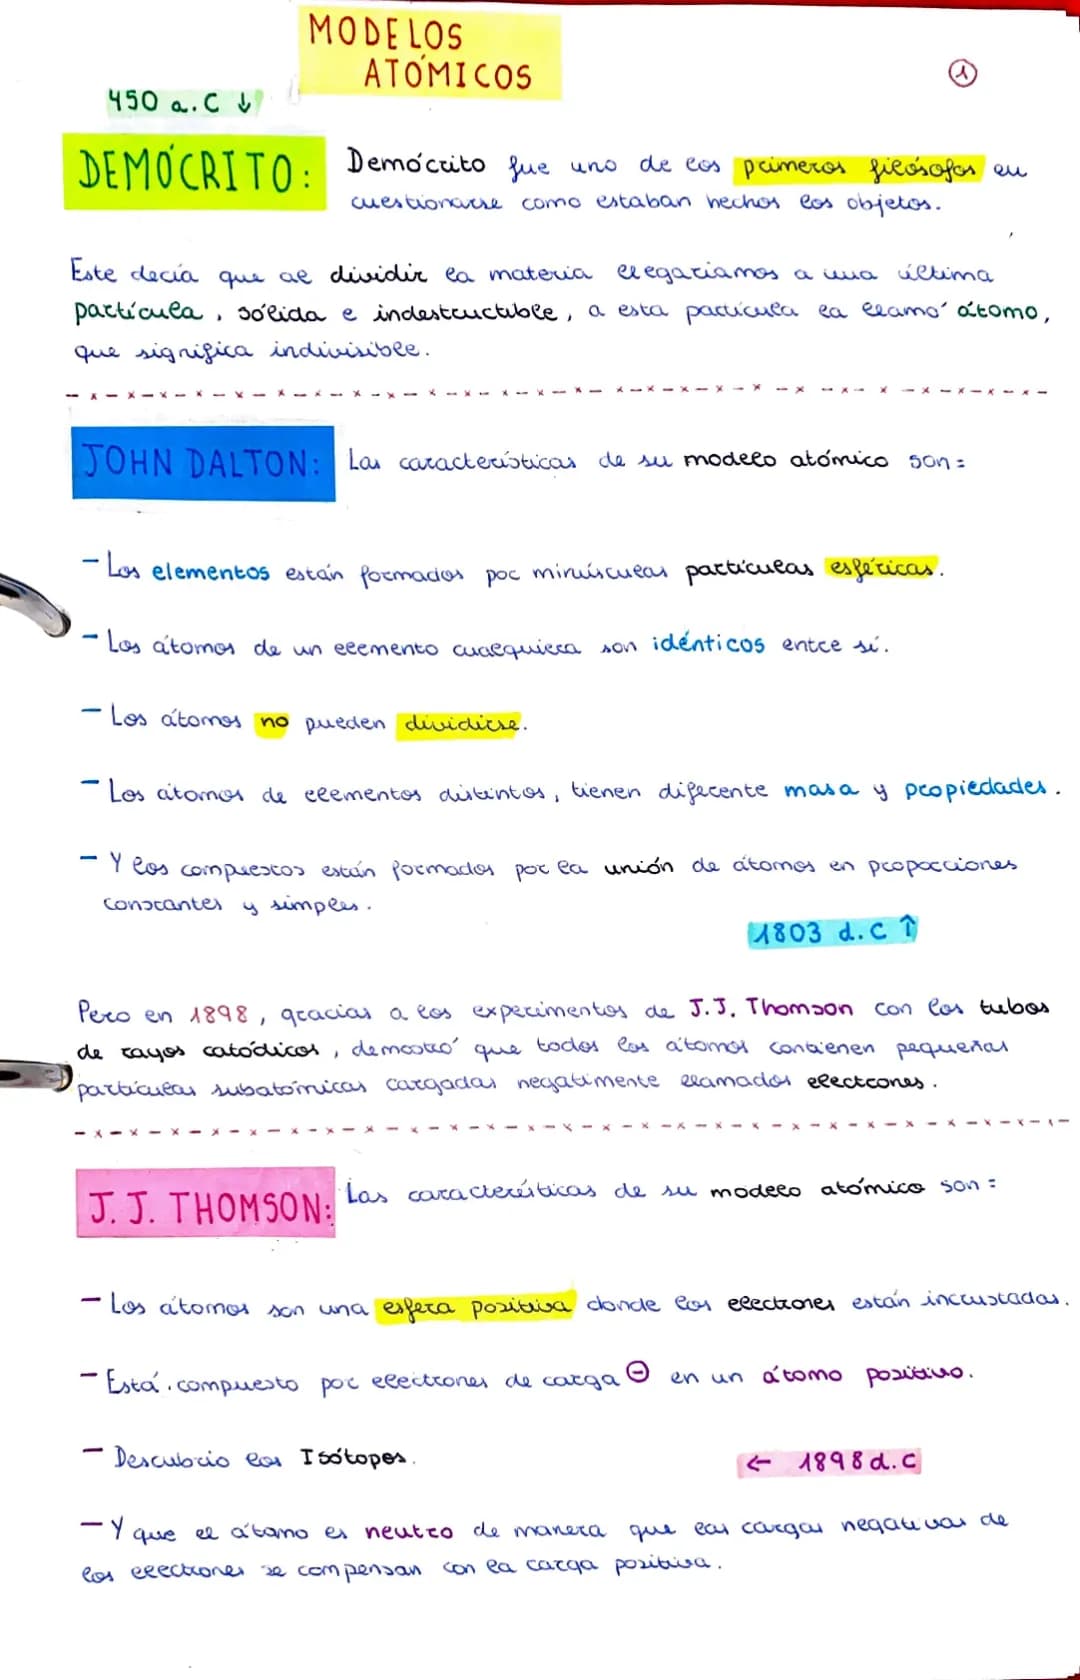 MODELOS
ATÓMICOS
1
450 a.C ↓
DEMÓCRITO: Demócrito fue uno de los primeros filósofos en
cuestionarse como estaban hechos los objetos.
Este decía que al dividir la materia llegaríamos a una última
partícula, sólida e indestructible, a esta partícula la llamó átomo,
que significa indivisible.
JOHN DALTON: Las características de su modelo atómico son:
- Los elementos están formados por minúsculas partículas esféricas.
- Los átomos de un elemento cualquiera son idénticos entre sí.
- Los átomos no pueden dividirse.
- Los átomos de elementos distintos, tienen diferente masa y propiedades.
- Y los compuestos están formados por la unión de átomos en proporciones
constantes y simples.
1803 d.C ↑
Pero en 1898, gracias a los experimentos de J.J. Thomson con los tubos
de rayos catódicos, demostró que todos los átomos contienen pequeñas
partículas subatómicas cargadas negatimente llamados electrones.
J.J. THOMSON: Las características de su modelo atómico son:
- Los átomos son una esfera positiva donde los electrones están incrustados.
- Está compuesto por electrones de carga ⊖ en un átomo positivo.
- Descubrio los Isótopos.
← 1898 d.C
- Y que el átomo es neutro de manera que las cargas negativas de
los electrones se compensan con la carga positiva.